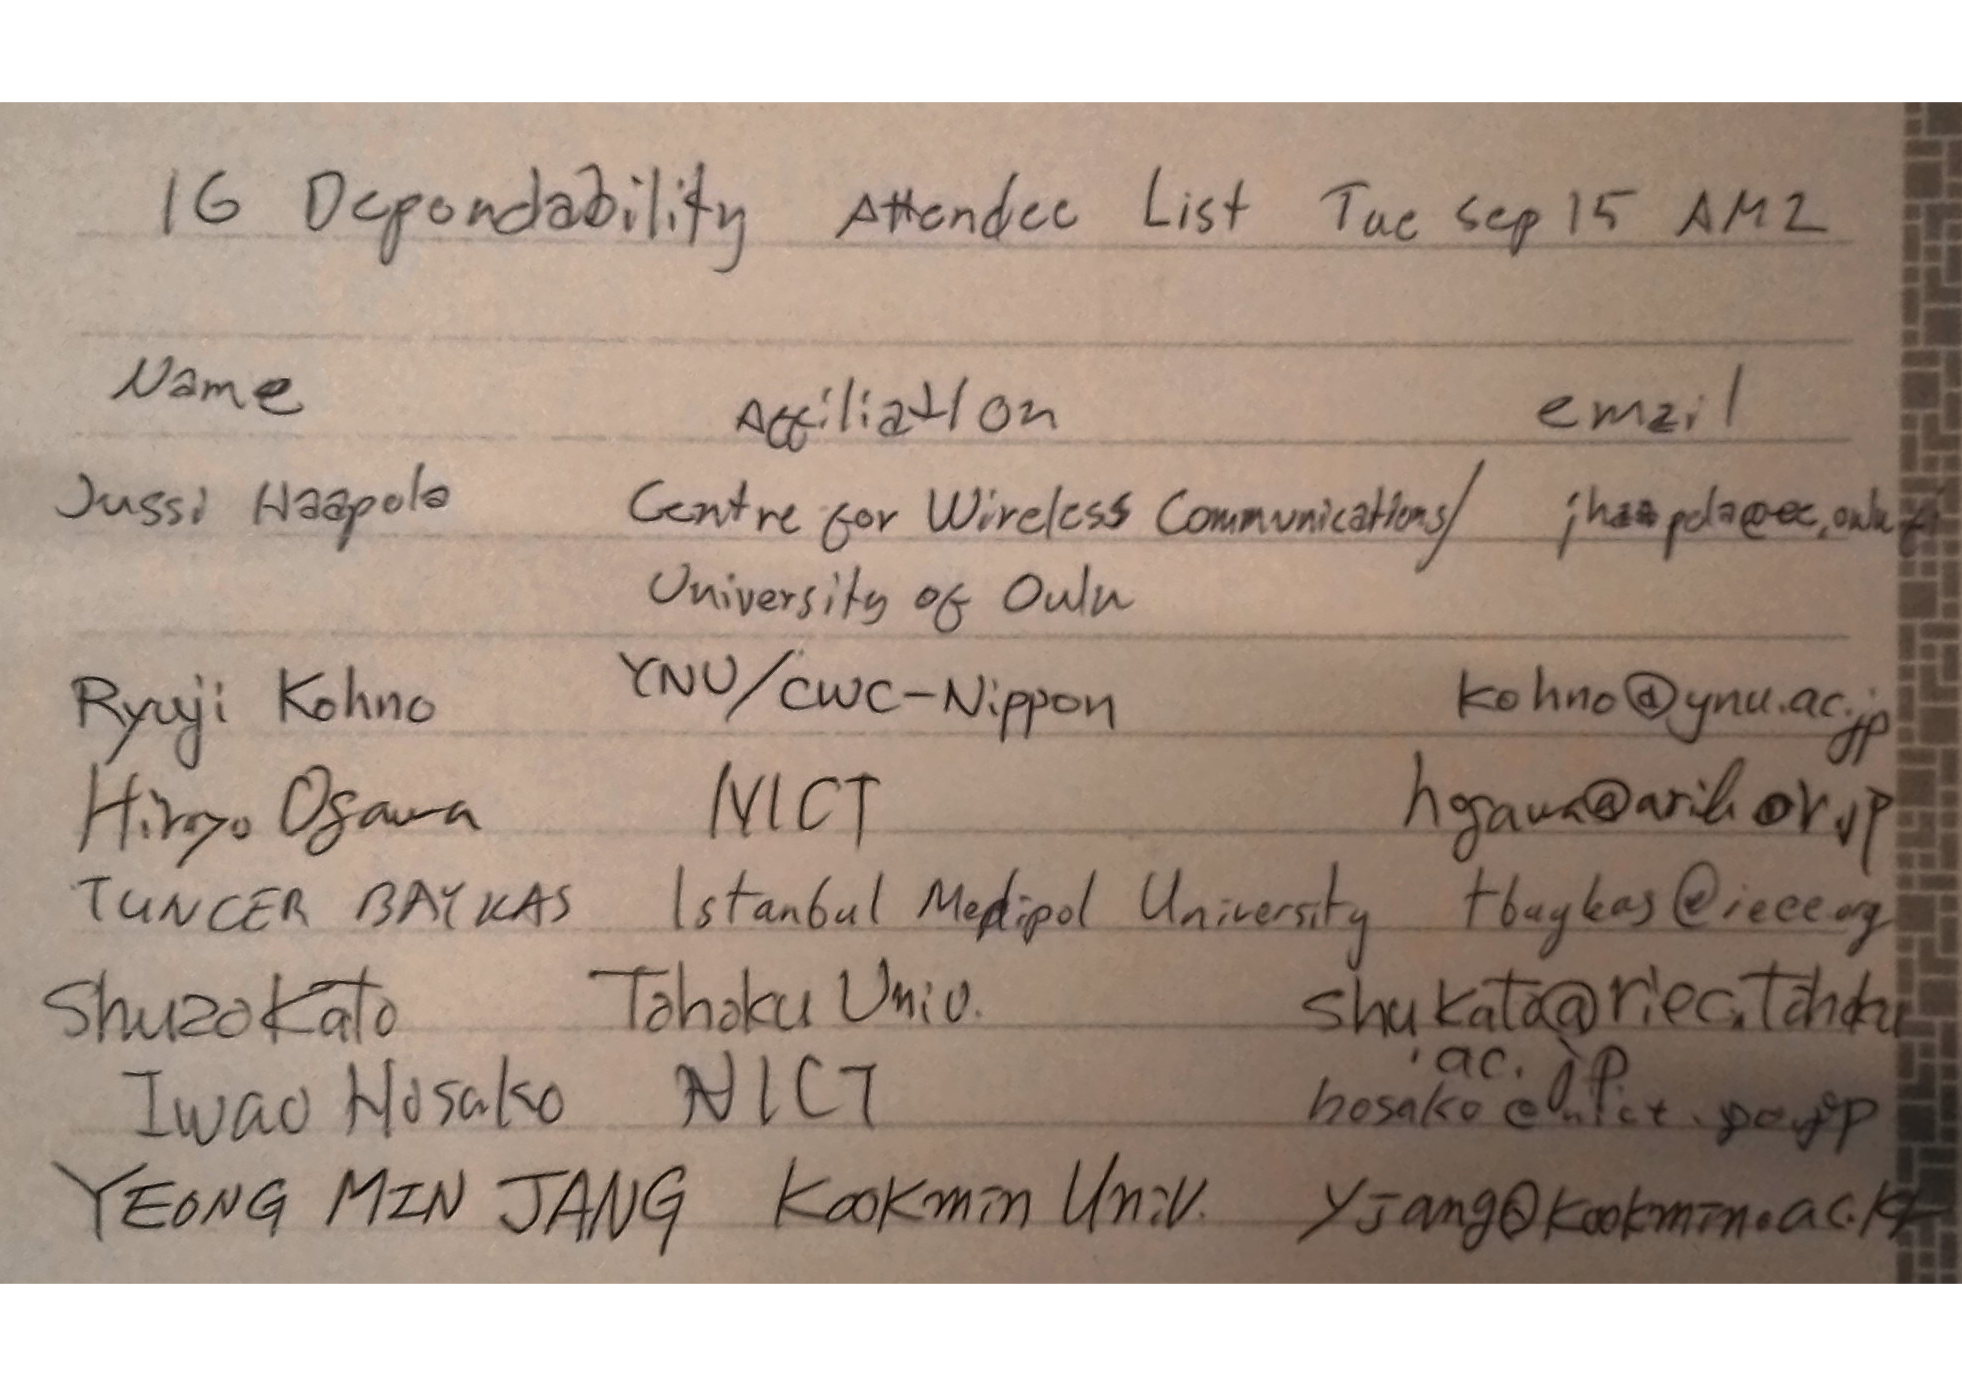 IG Dependability Attendee List Tue Sep 15 AM2
Name Affiliation email
Jussi Haapola Centre for Wireless Communications/ jhaapola@ee.oulu.fi
University of Oulu
Ryuji Kohno YNU/CWC-Nippon kohno@ynu.ac.jp
Hiroyo Ogawa NICT hogawa@arib.or.jp
TUNCER BAYKAS Istanbul Medipol University tbaykas@ieee.org
Shuzo Kato Tohoku Univ. shukato@riec.tohoku
.ac.jp
Iwao Hosako NICT hosako@nict.go.jp
YEONG MIN JANG Kookmin Univ. yjang@kookmin.ac.kr